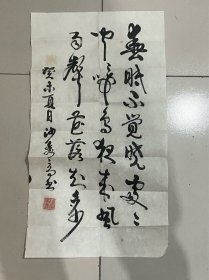 春眠不觉晓处处
闻啼鸟夜来风
雨声花落知多少
癸未夏日